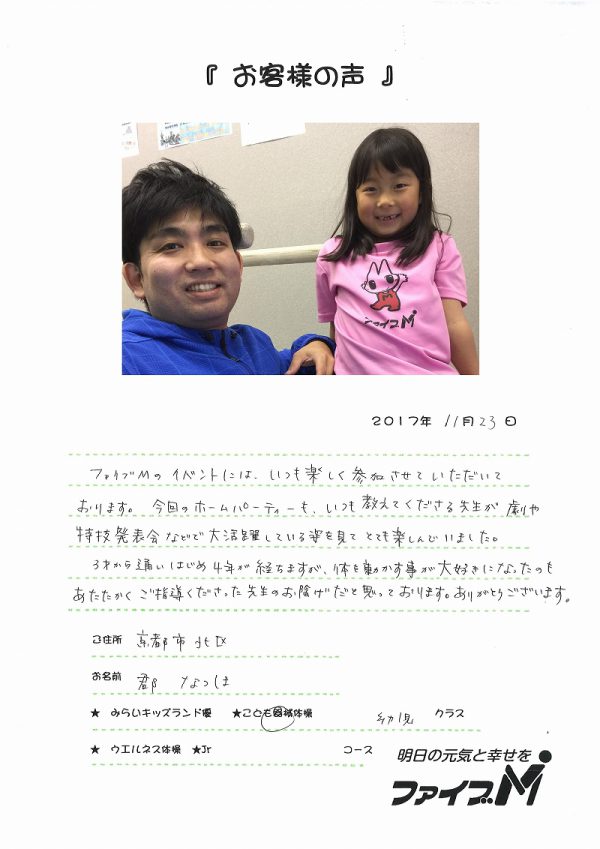 『 お客様の声 』
ファイブM
2017年 11月23日
ファイブMのイベントには、いつも楽しく参加させていただいて
おります。今回のホームパーティーも、いつも教えてくださる先生が劇や
特技発表会などで大活躍している姿を見てとても楽しんでいました。
3才から通いはじめ4年が経ちますが、体を動かす事が大好きになったのも
あたたかくご指導くださった先生のお陰げだと思っております。ありがとうございます。
ご住所 京都市北区
お名前 郡 なつほ
★ みらいキッズランド優 ★こども器械体操 幼児 クラス
★ ウエルネス体操 ★Jr コース
明日の元気と幸せを
ファイブM